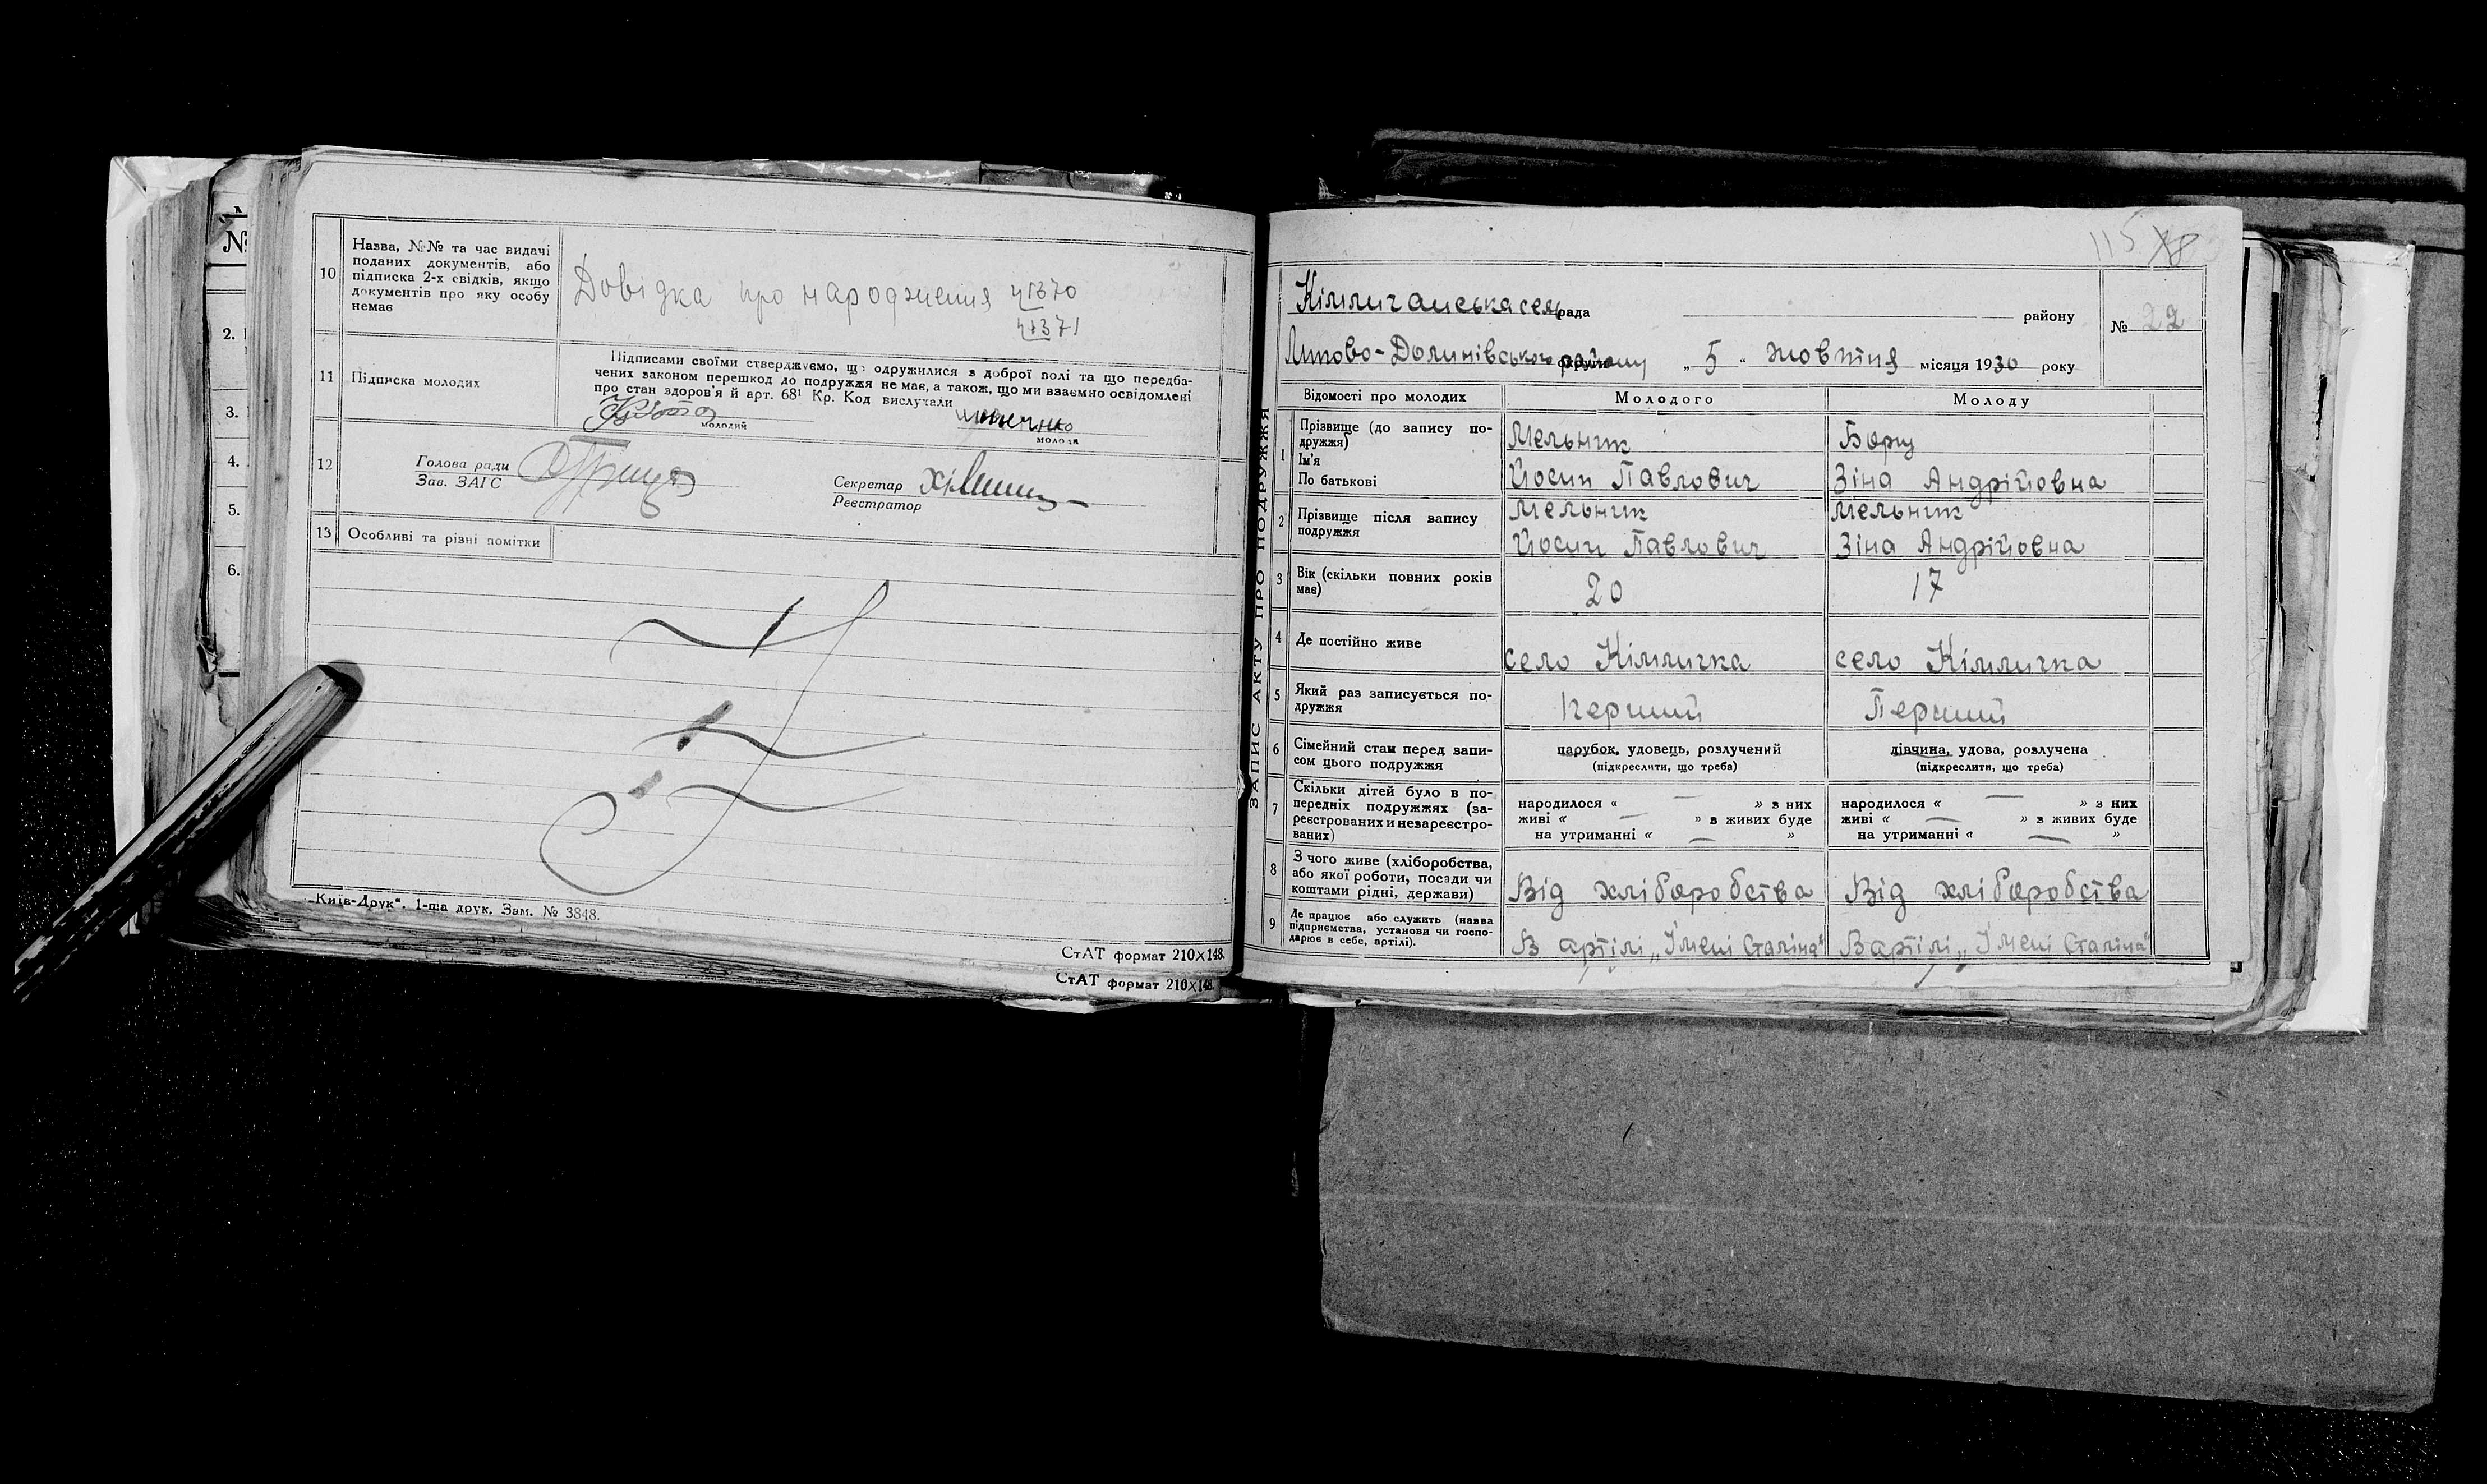 №
2.
3.
4.
5.
6.
10
Назва, №№ та час видачі
поданих документів, або
підписка 2-х свідків, якщо
документів про яку особу
немає
Довідка про народження ч1370
ч1371
11
Підписка молодих
Підписами своїми стверджуємо, що одружилися з доброї волі та що передба-
чених законом перешкод до подружжя не має, а також, що ми взаємно освідомлені
про стан здоров'я й арт. 68¹ Кр. Код вислухали
молодий
молода
12
Голова ради
Зав. ЗАГС
Секретар
Реєстратор
13
Особливі та різні помітки
„Київ-Друк“. 1-ша друк. Зам. № 3848.
СтАТ формат 210×148.
СтАТ формат 210×148.
ЗАПИС АКТУ ПРО ПОДРУЖЖЯ
115
Кімличанська сель рада району
№ 22
Липово-Долинівського району „5„ жовтня місяця 1930 року
Відомості про молодих Молодого Молоду
1
Прізвище (до запису по-
дружжя)
Ім'я
По батькові
Мельник
Йосип Павлович
Борщ
Зіна Андрійовна
2
Прізвище після запису
подружжя
Мельник
Йосип Павлович
Мельник
Зіна Андрійовна
3
Вік (скільки повних років
має)
20
17
4
Де постійно живе
село Кімличка
село Кімличка
5
Який раз записується по-
дружжя
Перший
Перший
6
Сімейний стан перед запи-
сом цього подружжя
парубок, удовець, розлучений
(підкреслити, що треба)
дівчина, удова, розлучена
(підкреслити, що треба)
7
Скільки дітей було в по-
передніх подружжях (за-
реєстрованих и незареєстро-
ваних)
народилося « — » з них
живі « — » в живих буде
на утриманні « — »
народилося « — » з них
живі « — » з живих буде
на утриманні « — »
8
З чого живе (хліборобства,
або якої роботи, посади чи
коштами рідні, держави)
Від хліборобства
Від хліборобства
9
Де працює або служить (назва
підприємства, установи чи госпо-
дарює в себе, артілі).
В артілі „Імені Сталіна“
В артілі „Імені Сталіна“